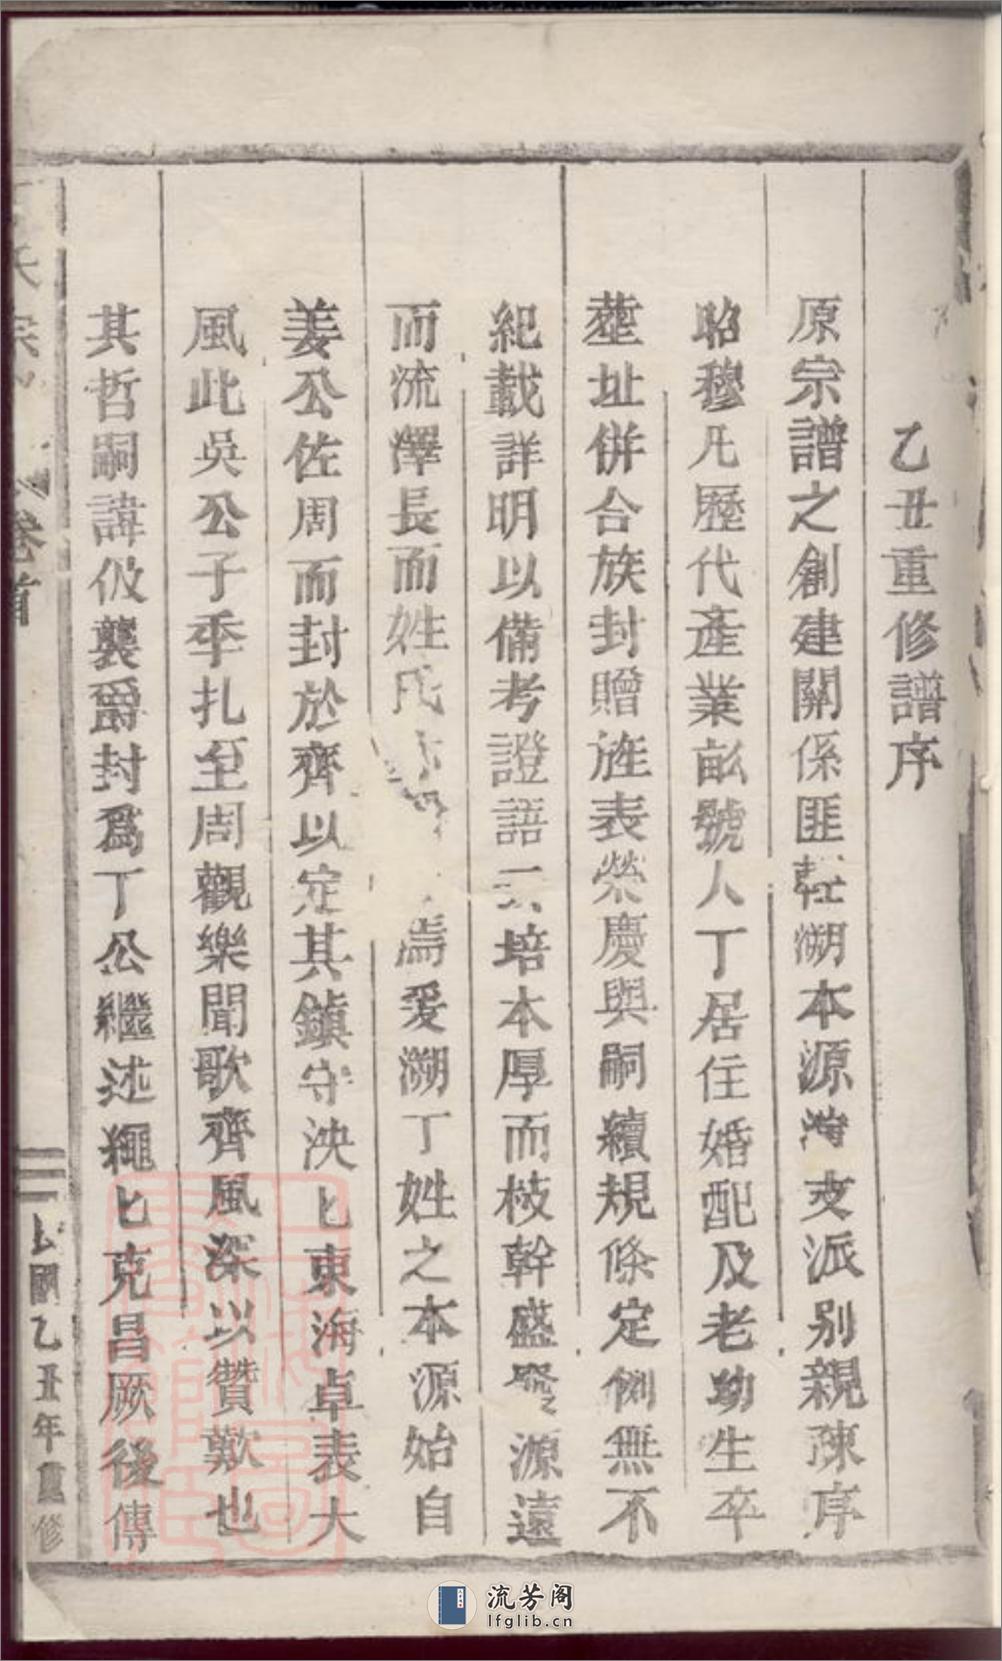 乙丑重修譜序
原宗譜之創建關係匪輕溯本源清支派别親疎序
昭穆凡歷代產業畝號人丁居住婚配及老幼生卒
塟址併合族封贈旌表榮慶與嗣續規條定例無不
紀載詳明以備考證語云培本厚而枝幹盛發源遠
而流澤長而姓氏焉爰溯丁姓之本源始自
姜公佐周而封於齊以定其鎮守泱匕東海卓表大
風此吳公子季扎至周觀樂聞歌齊風深以贊歎也
其哲嗣諱伋襲爵封爲丁公繼述繩匕克昌厥後傳
氏宗 卷首
民國乙丑年重修
流芳阁
lfglib.cn